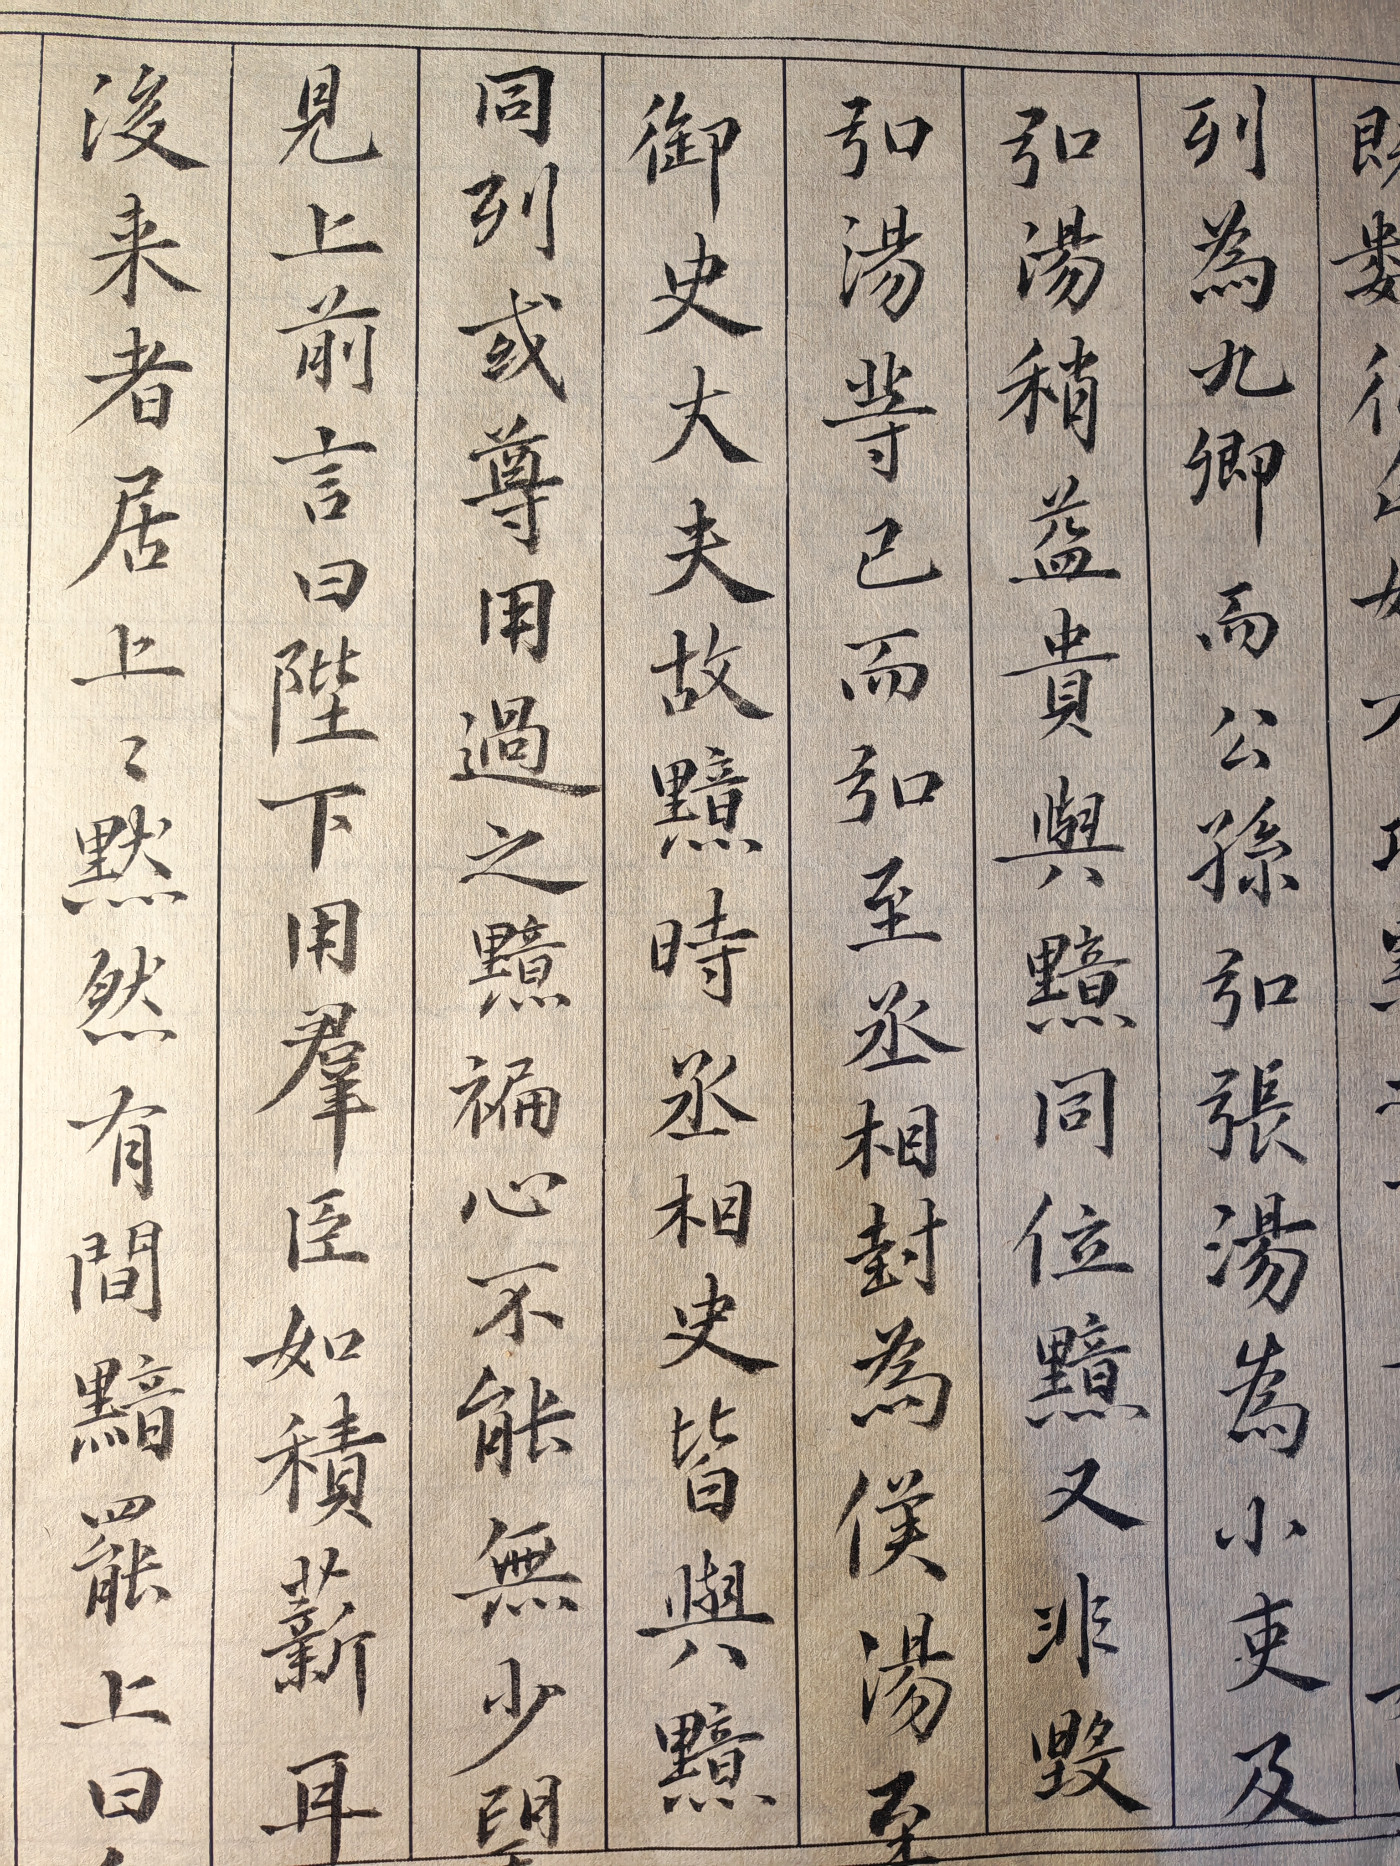 既數
列為九卿而公孫弘張湯為小吏及
弘湯稍益貴與黯同位黯又非毀
弘湯等已而弘至丞相封為侯湯至
御史大夫故黯時丞相史皆與黯
同列或尊用過之黯褊心不能無少望
見上前言曰陛下用羣臣如積薪耳
後来者居上上默然有間黯罷上曰